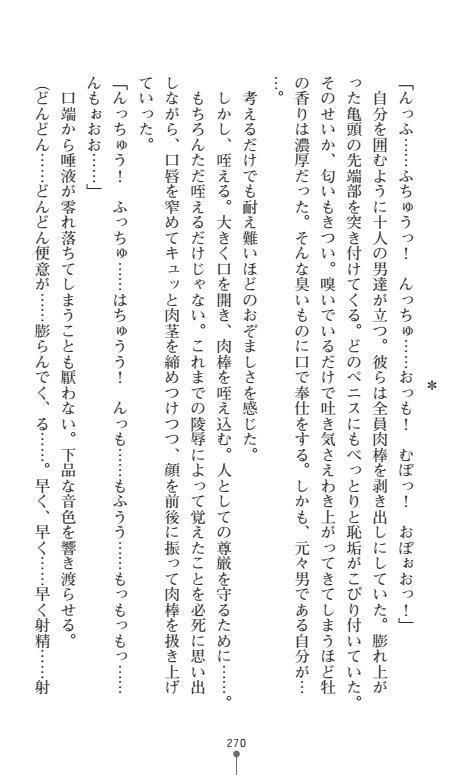 ＊
「んっふ……ふちゅうっ！　んっちゅ……おっも！　むぽっ！　おぽぉおっ！」
自分を囲むように十人の男達が立つ。彼らは全員肉棒を剥き出しにしていた。膨れ上が
った亀頭の先端部を突き付けてくる。どのペニスにもべっとりと恥垢がこびり付いていた。
そのせいか、匂いもきつい。嗅いでいるだけで吐き気さえわき上がってきてしまうほど牡
の香りは濃厚だった。そんな臭いものに口で奉仕をする。しかも、元々男である自分が…
…。
考えるだけでも耐え難いほどのおぞましさを感じた。
しかし、咥える。大きく口を開き、肉棒を咥え込む。人としての尊厳を守るために……。
もちろんただ咥えるだけじゃない。これまでの陵辱によって覚えたことを必死に思い出
しながら、口唇を窄めてキュッと肉茎を締めつけつつ、顔を前後に振って肉棒を扱き上げ
ていった。
「んっちゅう！　ふっちゅ……はちゅうう！　んっも……もふうう……もっもっもっ……
んもぉおお……」
口端から唾液が零れ落ちてしまうことも厭わない。下品な音色を響き渡らせる。
（どんどん……どんどん便意が……膨らんでく、る……。早く、早く……早く射精……射
270